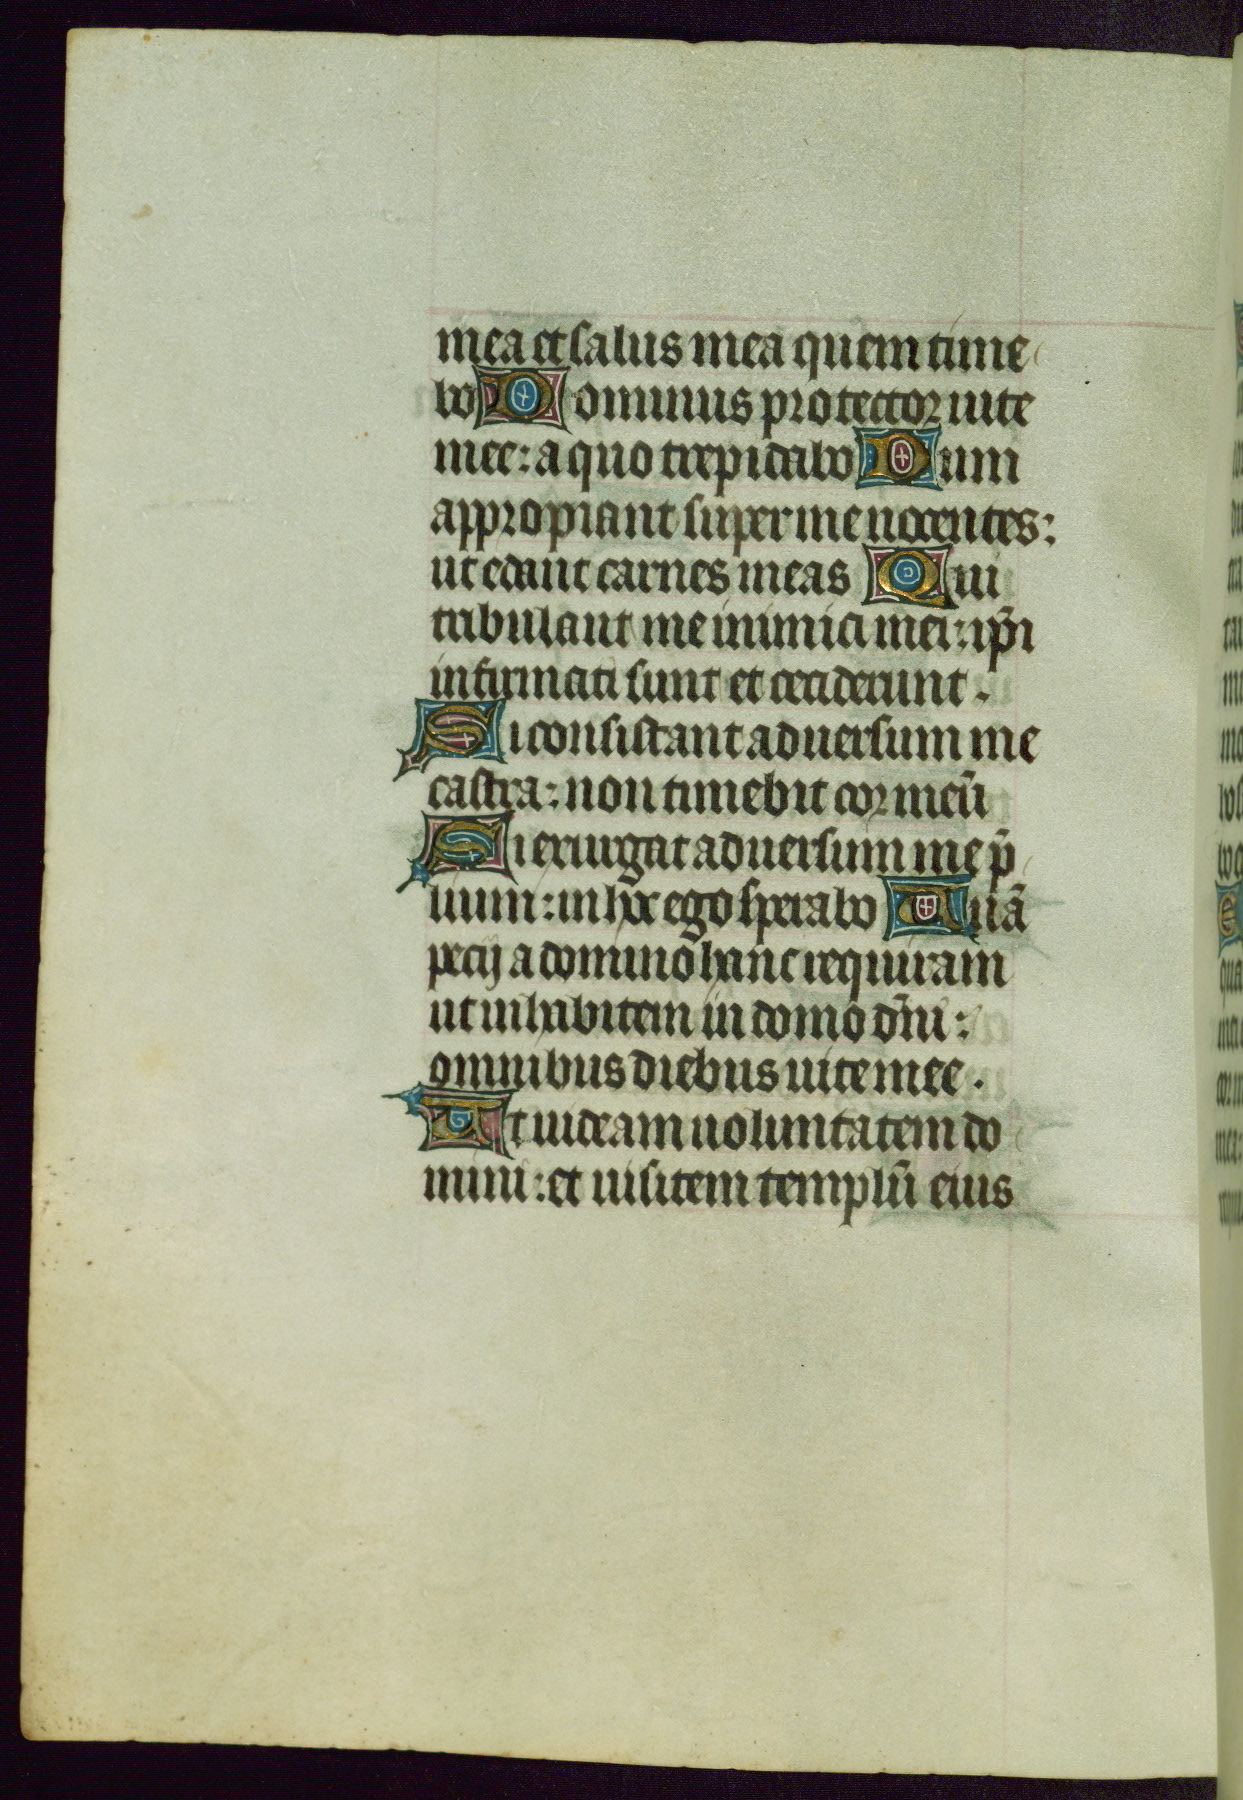 mea et salus mea quem time
bo Dominus protector uite
mee: a quo trepidabo Dum
appropiant super me nocentes:
ut edant carnes meas Qui
tribulant me inimici mei: ip̄i
infirmati sunt et ceciderunt.
Si consistant aduersum me
castra: non timebit cor meū
Si exurgat aduersum me p̄
lium: in hoc ego sperabo Unā
pecij a domino hanc requiram
ut inhabitem in domo dn̄i:
omnibus diebus uite mee.
Ut uideam uoluntatem do
mini: et uisitem templū eius